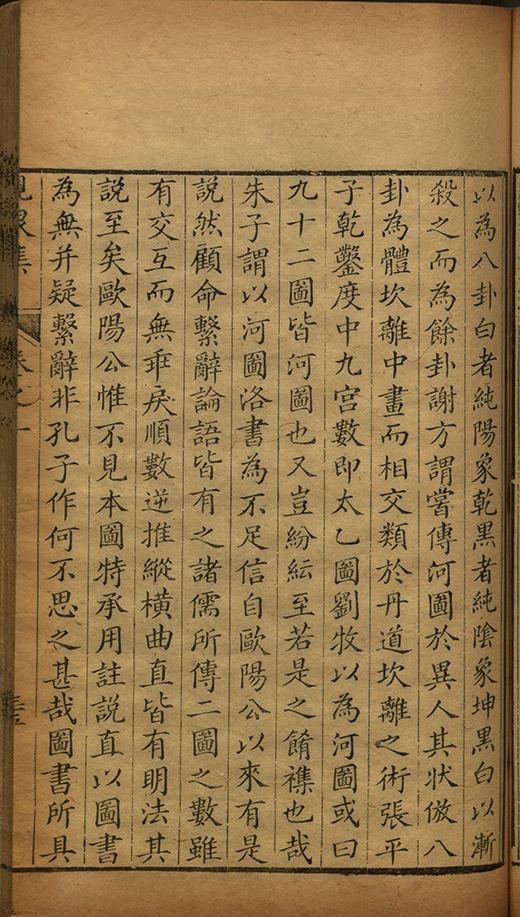 以為八卦白者純陽象乾黒者純陰象坤黒白以漸
殺之而為餘卦謝方謂嘗傳河圖於異人其狀倣八
卦為體坎離中畫而相交類於丹道坎離之術張平
子乾鑿度中九宫數即太乙圖劉牧以為河圖或曰
九十二圖皆河圖也又豈紛紜至若是之餚襍也哉
朱子謂以河圖洛書為不足信自歐陽公以來有是
說然顧命繫辭論語皆有之諸儒所傳二圖之數雖
有交互而無乖戾順數逆推縱橫曲直皆有明法其
說至矣歐陽公惟不見本圖特承用註說直以圖書
為無并疑繫辭非孔子作何不思之甚哉圖書所具